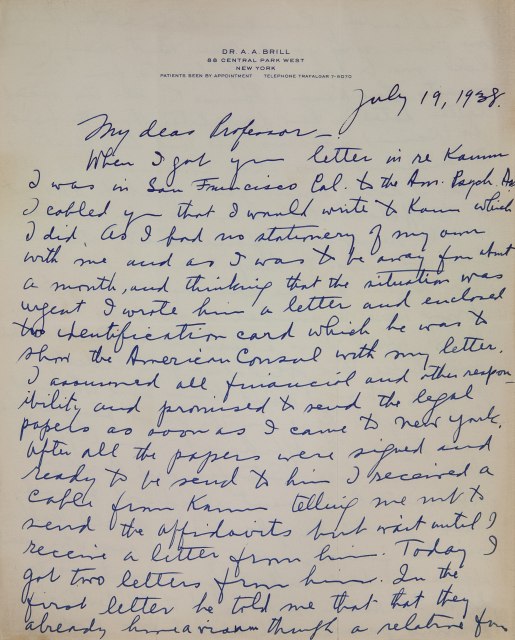 DR. A. A. BRILL
88 CENTRAL PARK WEST
NEW YORK
PATIENTS SEEN BY APPOINTMENT TELEPHONE TRAFALGAR 7-6070
July 19, 1938.
My dear Professor –
When I got your letter in re
I was in San Francisco Cal. to the Am. Psych. As
I cabled you that I would write to which
I did. As I had no stationery of my own
with me and as I was to be away for about
a month, and thinking that the situation was
urgent I wrote him a letter and enclosed
identification card which he was to
show the American Consul with my letter.
I assumed all financial and other respon-
ibility and promised to send the legal
papers as soon as I came to New York.
After all the papers were signed and
ready to be send to him I received a
cable from telling me not to
send the affidavits but wait until I
receive a letter from him. Today I
got two letters from him. In the
first letter he told me that that they
already have a visum through a relative